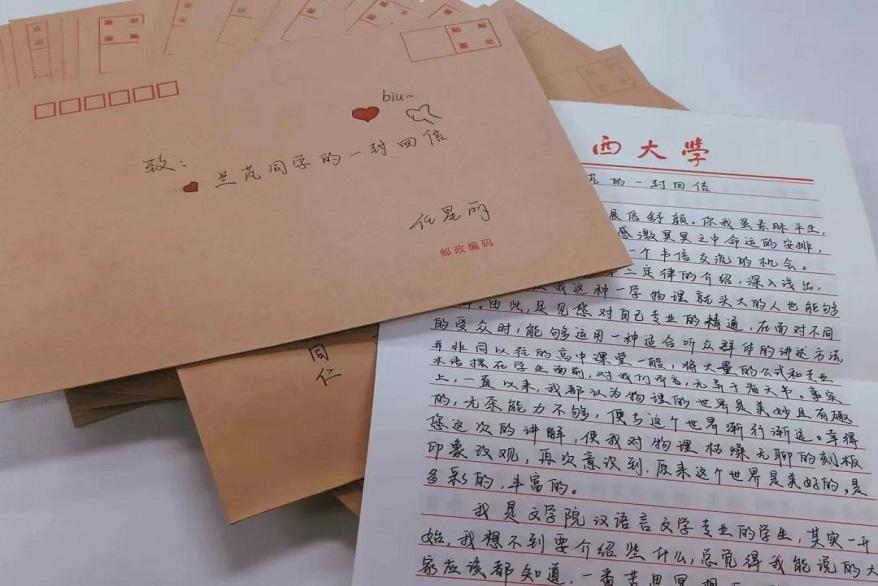 biu~
致:
兰芃同学的一封回信
任星雨
邮政编码
同
仁
西大學
芃的一封回信
展信舒颜。你我虽素昧平生,
感激冥冥之中命运的安排,
一个书信交流的机会。
二定律的介绍,深入浅出,
我这种一学物理就头大的人也能够
。由此,足见您对自己专业的精通,在面对不同
的受众时,能够运用一种适合听众群体的讲述方法,
并非同以往的高中课堂一般,将大量的公式和专业
术语摆在学生面前,对我们而言,无异于看天书。事实
上,一直以来,我都认为物理的世界是美妙且有趣
的,无奈能力不够,便与这个世界渐行渐远。幸得
您这次的讲解,使我对物理枯燥无聊的刻板
印象改观,再次意识到,原来这个世界是美好的,是
多彩的,丰富的。
我是文学院汉语言文学专业的学生,其实一开
始,我想不到要介绍些什么,总觉得我能说的大
家应该都知道,一番苦思冥想